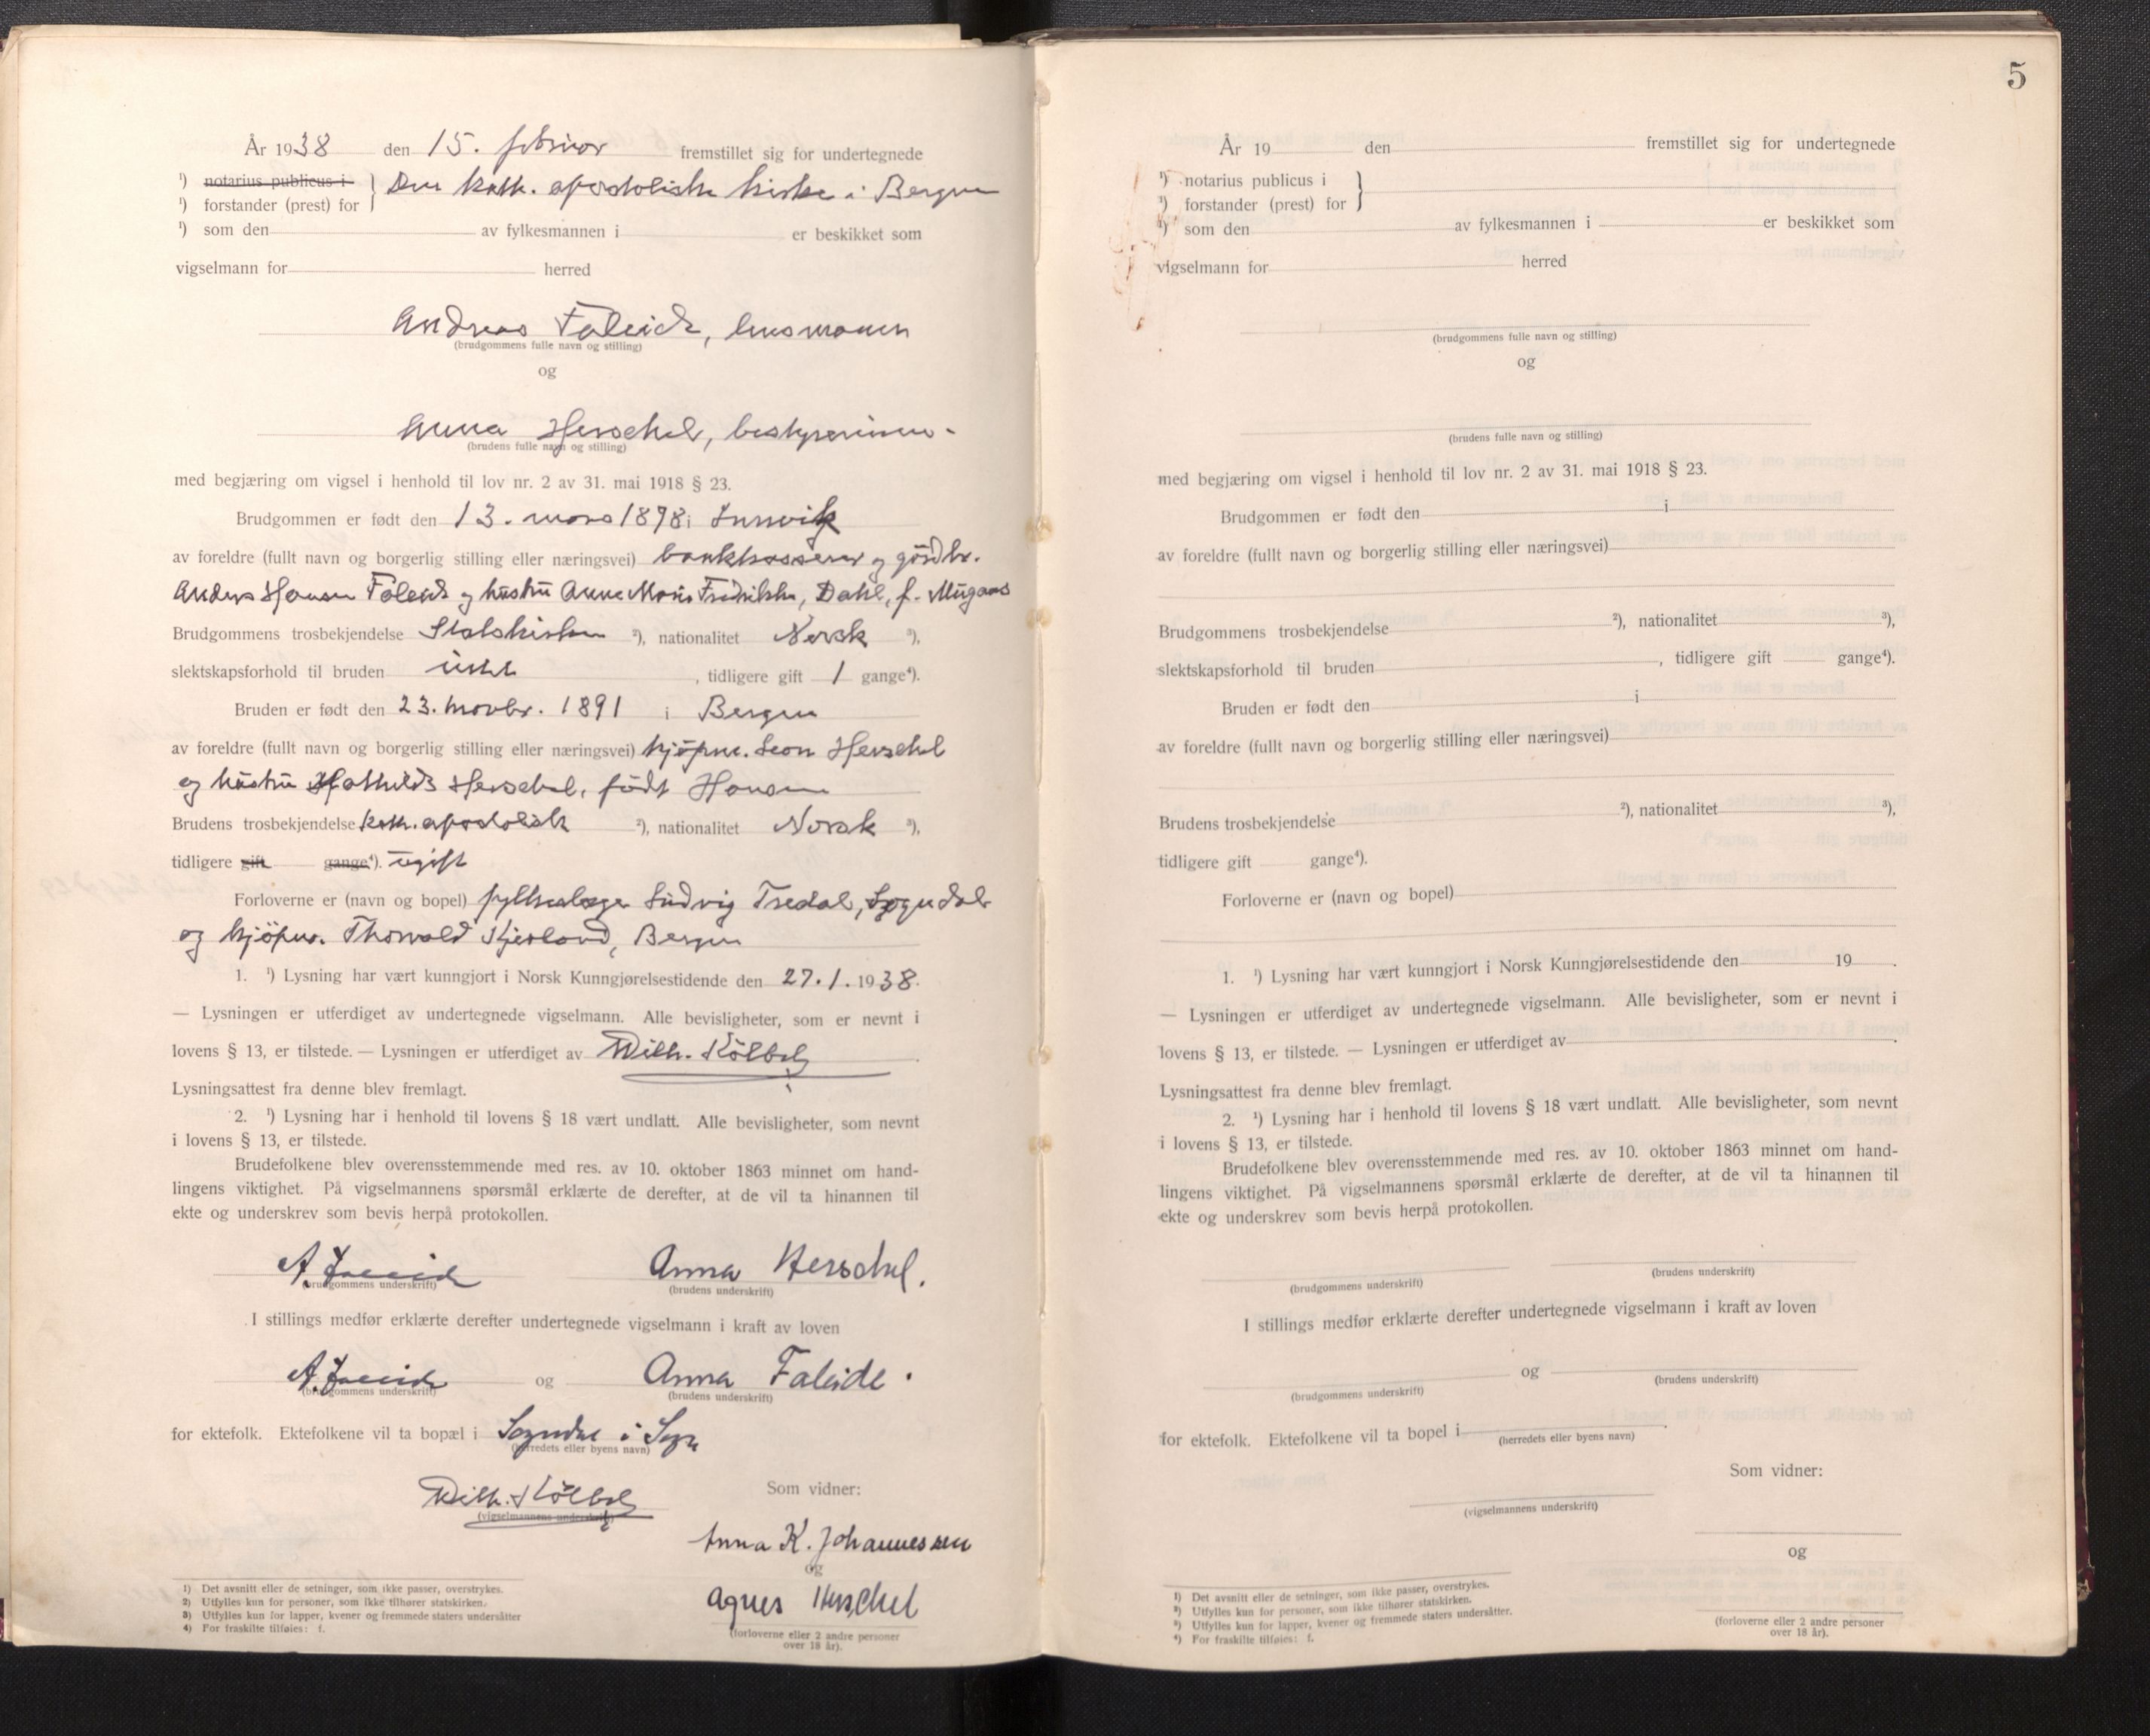 År 1938 den 15. februar fremstillet sig for undertegnede
¹) notarius publicus i
Den kath. apostoliske kirke i Bergen
¹) forstander (prest) for
¹) som den av fylkesmannen i er beskikket som
vigselmann for herred
Andreas Faleide, lensmann
(brudgommens fulle navn og stilling)
og
Anna Herschel, bestyrerinne
(brudens fulle navn og stilling)
med begjæring om vigsel i henhold til lov nr. 2 av 31. mai 1918 § 23.
Brudgommen er født den 13. mars 1898 i Innvik
av foreldre (fullt navn og borgerlig stilling eller næringsvei) bankkasserer og gårdbr.
Anders Hansen Faleide og hustru Anne Marie Fredrikke, Dahl, f. Mugaas
Brudgommens trosbekjendelse Statskirken ²), nationalitet Norsk ³),
slektskapsforhold til bruden intet , tidligere gift 1 gange⁴).
Bruden er født den 23. novbr. 1891 i Bergen
av foreldre (fullt navn og borgerlig stilling eller næringsvei) kjøpm. Leon Herschel
og hustru Mathilde Herschel, født Hansen
Brudens trosbekjendelse kath. apostolisk ²), nationalitet Norsk ³),
tidligere gift gange⁴). ugift
Forloverne er (navn og bopel) fylkeslæge Ludvig Tredal, Sogndal
og kjøpm. Thorvald Kjesland, Bergen
1. ¹) Lysning har vært kunngjort i Norsk Kunngjørelsestidende den 27.1.1938.
— Lysningen er utferdiget av undertegnede vigselmann. Alle bevisligheter, som er nevnt i
lovens § 13, er tilstede. — Lysningen er utferdiget av Wilh. Kölbel.
Lysningsattest fra denne blev fremlagt.
2. ¹) Lysning har i henhold til lovens § 18 vært undlatt. Alle bevisligheter, som nevnt
i lovens § 13, er tilstede.
Brudefolkene blev overensstemmende med res. av 10. oktober 1863 minnet om hand-
lingens viktighet. På vigselmannens spørsmål erklærte de derefter, at de vil ta hinannen til
ekte og underskrev som bevis herpå protokollen.
A. Faleide Anna Herschel.
(brudgommens underskrift) (brudens underskrift)
I stillings medfør erklærte derefter undertegnede vigselmann i kraft av loven
A. Faleide og Anna Faleide.
(brudgommens underskrift) (brudens underskrift)
for ektefolk. Ektefolkene vil ta bopæl i Sogndal i Sogn
(herredets eller byens navn)
Wilh. Kölbel Som vidner:
(vigselmannens underskrift)
Anna K. Johannessen
og
Agnes Herschel
(forloverne eller 2 andre personer
over 18 år).
1) Det avsnitt eller de setninger, som ikke passer, overstrykes.
2) Utfylles kun for personer, som ikke tilhører statskirken.
3) Utfylles kun for lapper, kvener og fremmede staters undersåtter
4) For fraskilte tilføies: f.
5
År 19 den fremstillet sig for undertegnede
¹) notarius publicus i
¹) forstander (prest) for
¹) som den av fylkesmannen i er beskikket som
vigselmann for herred
(brudgommens fulle navn og stilling)
og
(brudens fulle navn og stilling)
med begjæring om vigsel i henhold til lov nr. 2 av 31. mai 1918 § 23.
Brudgommen er født den i
av foreldre (fullt navn og borgerlig stilling eller næringsvei)
Brudgommens trosbekjendelse ²), nationalitet ³),
slektskapsforhold til bruden , tidligere gift gange⁴).
Bruden er født den i
av foreldre (fullt navn og borgerlig stilling eller næringsvei)
Brudens trosbekjendelse ²), nationalitet ³),
tidligere gift gange⁴).
Forloverne er (navn og bopel)
1. ¹) Lysning har vært kunngjort i Norsk Kunngjørelsestidende den 19 .
— Lysningen er utferdiget av undertegnede vigselmann. Alle bevisligheter, som er nevnt i
lovens § 13, er tilstede. — Lysningen er utferdiget av .
Lysningsattest fra denne blev fremlagt.
2. ¹) Lysning har i henhold til lovens § 18 vært undlatt. Alle bevisligheter, som nevnt
i lovens § 13, er tilstede.
Brudefolkene blev overensstemmende med res. av 10. oktober 1863 minnet om hand-
lingens viktighet. På vigselmannens spørsmål erklærte de derefter, at de vil ta hinannen til
ekte og underskrev som bevis herpå protokollen.
(brudgommens underskrift) (brudens underskrift)
I stillings medfør erklærte derefter undertegnede vigselmann i kraft av loven
og
(brudgommens underskrift) (brudens underskrift)
for ektefolk. Ektefolkene vil ta bopel i .
(herredets eller byens navn)
Som vidner:
(vigselmannens underskrift)
og
(forloverne eller 2 andre personer
over 18 år).
1) Det avsnitt eller de setninger, som ikke passer, overstrykes.
2) Utfylles kun for personer, som ikke tilhører statskirken.
3) Utfylles kun for lapper, kvener og fremmede staters undersåtter.
4) For fraskilte tilføies: f.